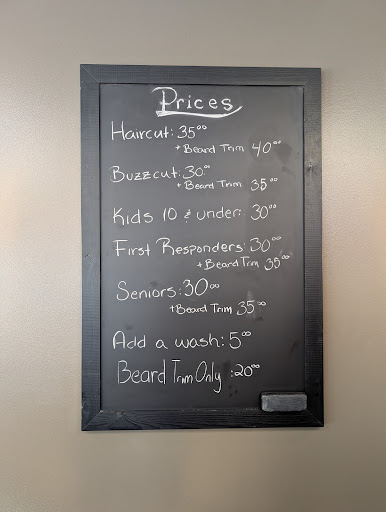 Prices
Haircut: 35⁰⁰
+ Beard Trim 40⁰⁰
Buzzcut: 30⁰⁰
+ Beard Trim 35⁰⁰
Kids 10 & under: 30⁰⁰
First Responders: 30⁰⁰
+ Beard Trim 35⁰⁰
Seniors: 30⁰⁰
+ Beard Trim 35⁰⁰
Add a wash: 5⁰⁰
Beard Trim Only: 20⁰⁰